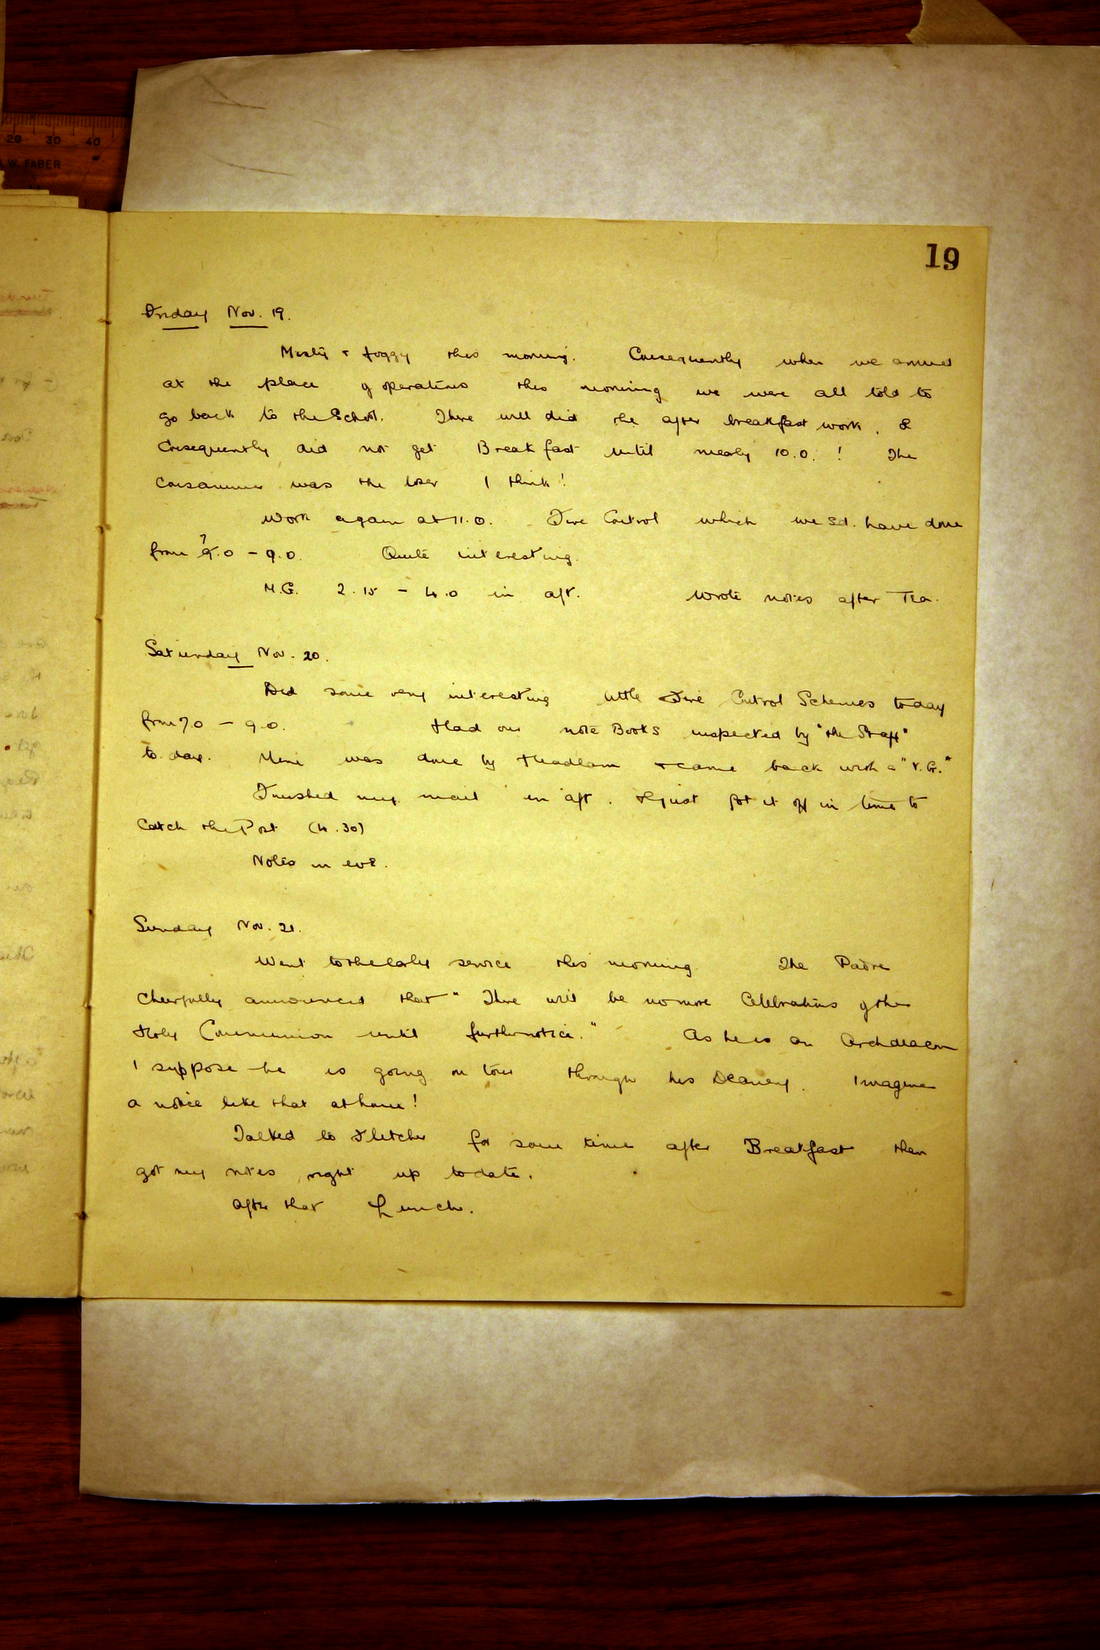 19
Friday Nov. 19.
Misty & foggy this morning. Consequently when we arrived
at the place of operations this morning we were all told to
go back to the School. There we did the after breakfast work, &
Consequently did not get Breakfast until nearly 10.0. ! The
Consammer was the loser I think!
Work again at 11.0. Fire Control which we sd. have done
from 7.0 - 9.0. Quite interesting.
M.G. 2.15 - 4.0 in aft. Wrote notes after Tea.
Saturday Nov. 20.
Did some very interesting little Fire Control Schemes today
from 7.0 - 9.0. Had our note Books inspected by "the Staff"
to day. Mine was done by Headlam & came back with a "V.G."
Finished my mail in aft. & just got it off in time to
Catch the Post (4.30)
Notes in eve.
Sunday Nov. 21.
Went to the Early service this morning. The Padre
Cheerfully announced that "There will be no more Celebrations of the
Holy Communion until further notice." As he is an Archdeacon
I suppose he is going on tour through his Deanery. Imagine
a notice like that at home!
Talked to Fletcher for some time after Breakfast then
got my notes right up to date.
After that Lunch.
20 30 40
W. FABER